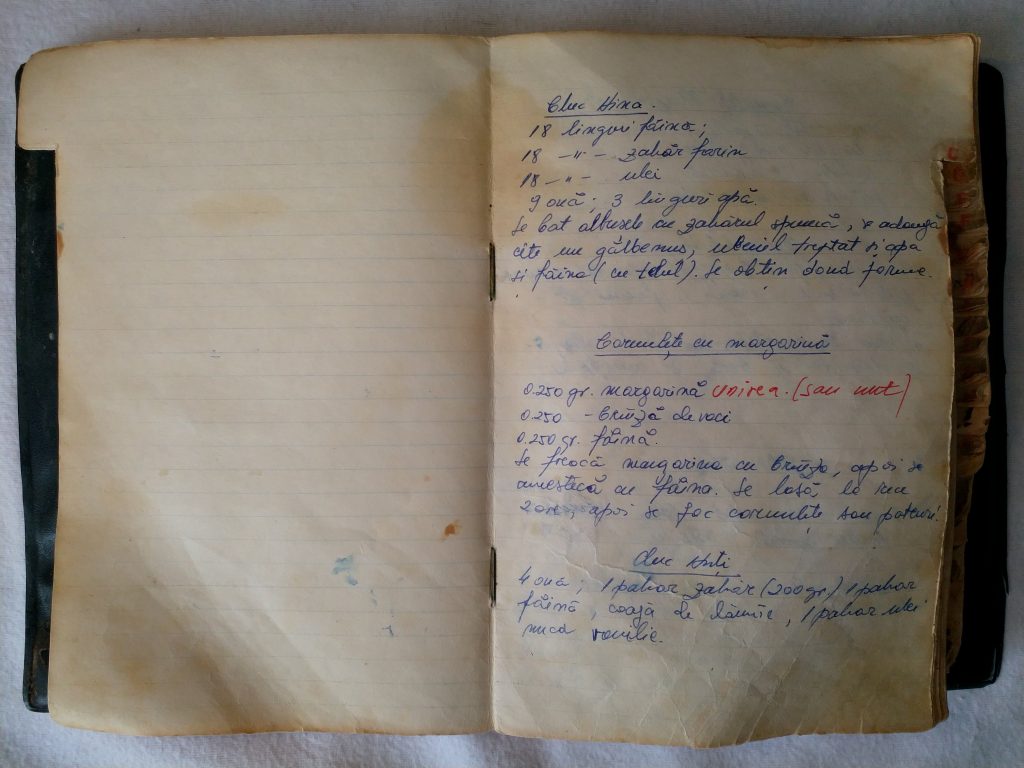 Chec Dina.
18 linguri făină;
18 -"- zahăr farin
18 -"- ulei
9 ouă; 3 linguri apă.
Se bat albușele cu zahărul spumă, se adaugă
cîte un gălbenuș, uleiul treptat și apa
și făina (cu telul). Se obțin două forme.
Cornulețe cu margarină
0.250 gr. margarină Unirea. (sau unt)
0.250 - brînză de vaci
0.250 gr. făină.
Se freacă margarina cu brînza, apoi se
amestecă cu făina. Se lasă la rece
2 ore, apoi se fac cornulețe sau pateuri.
Chec
4 ouă; 1 pahar zahăr (200 gr) 1 pahar
făină, coajă de lămîie, 1 pahar ulei
nucă vanilie.